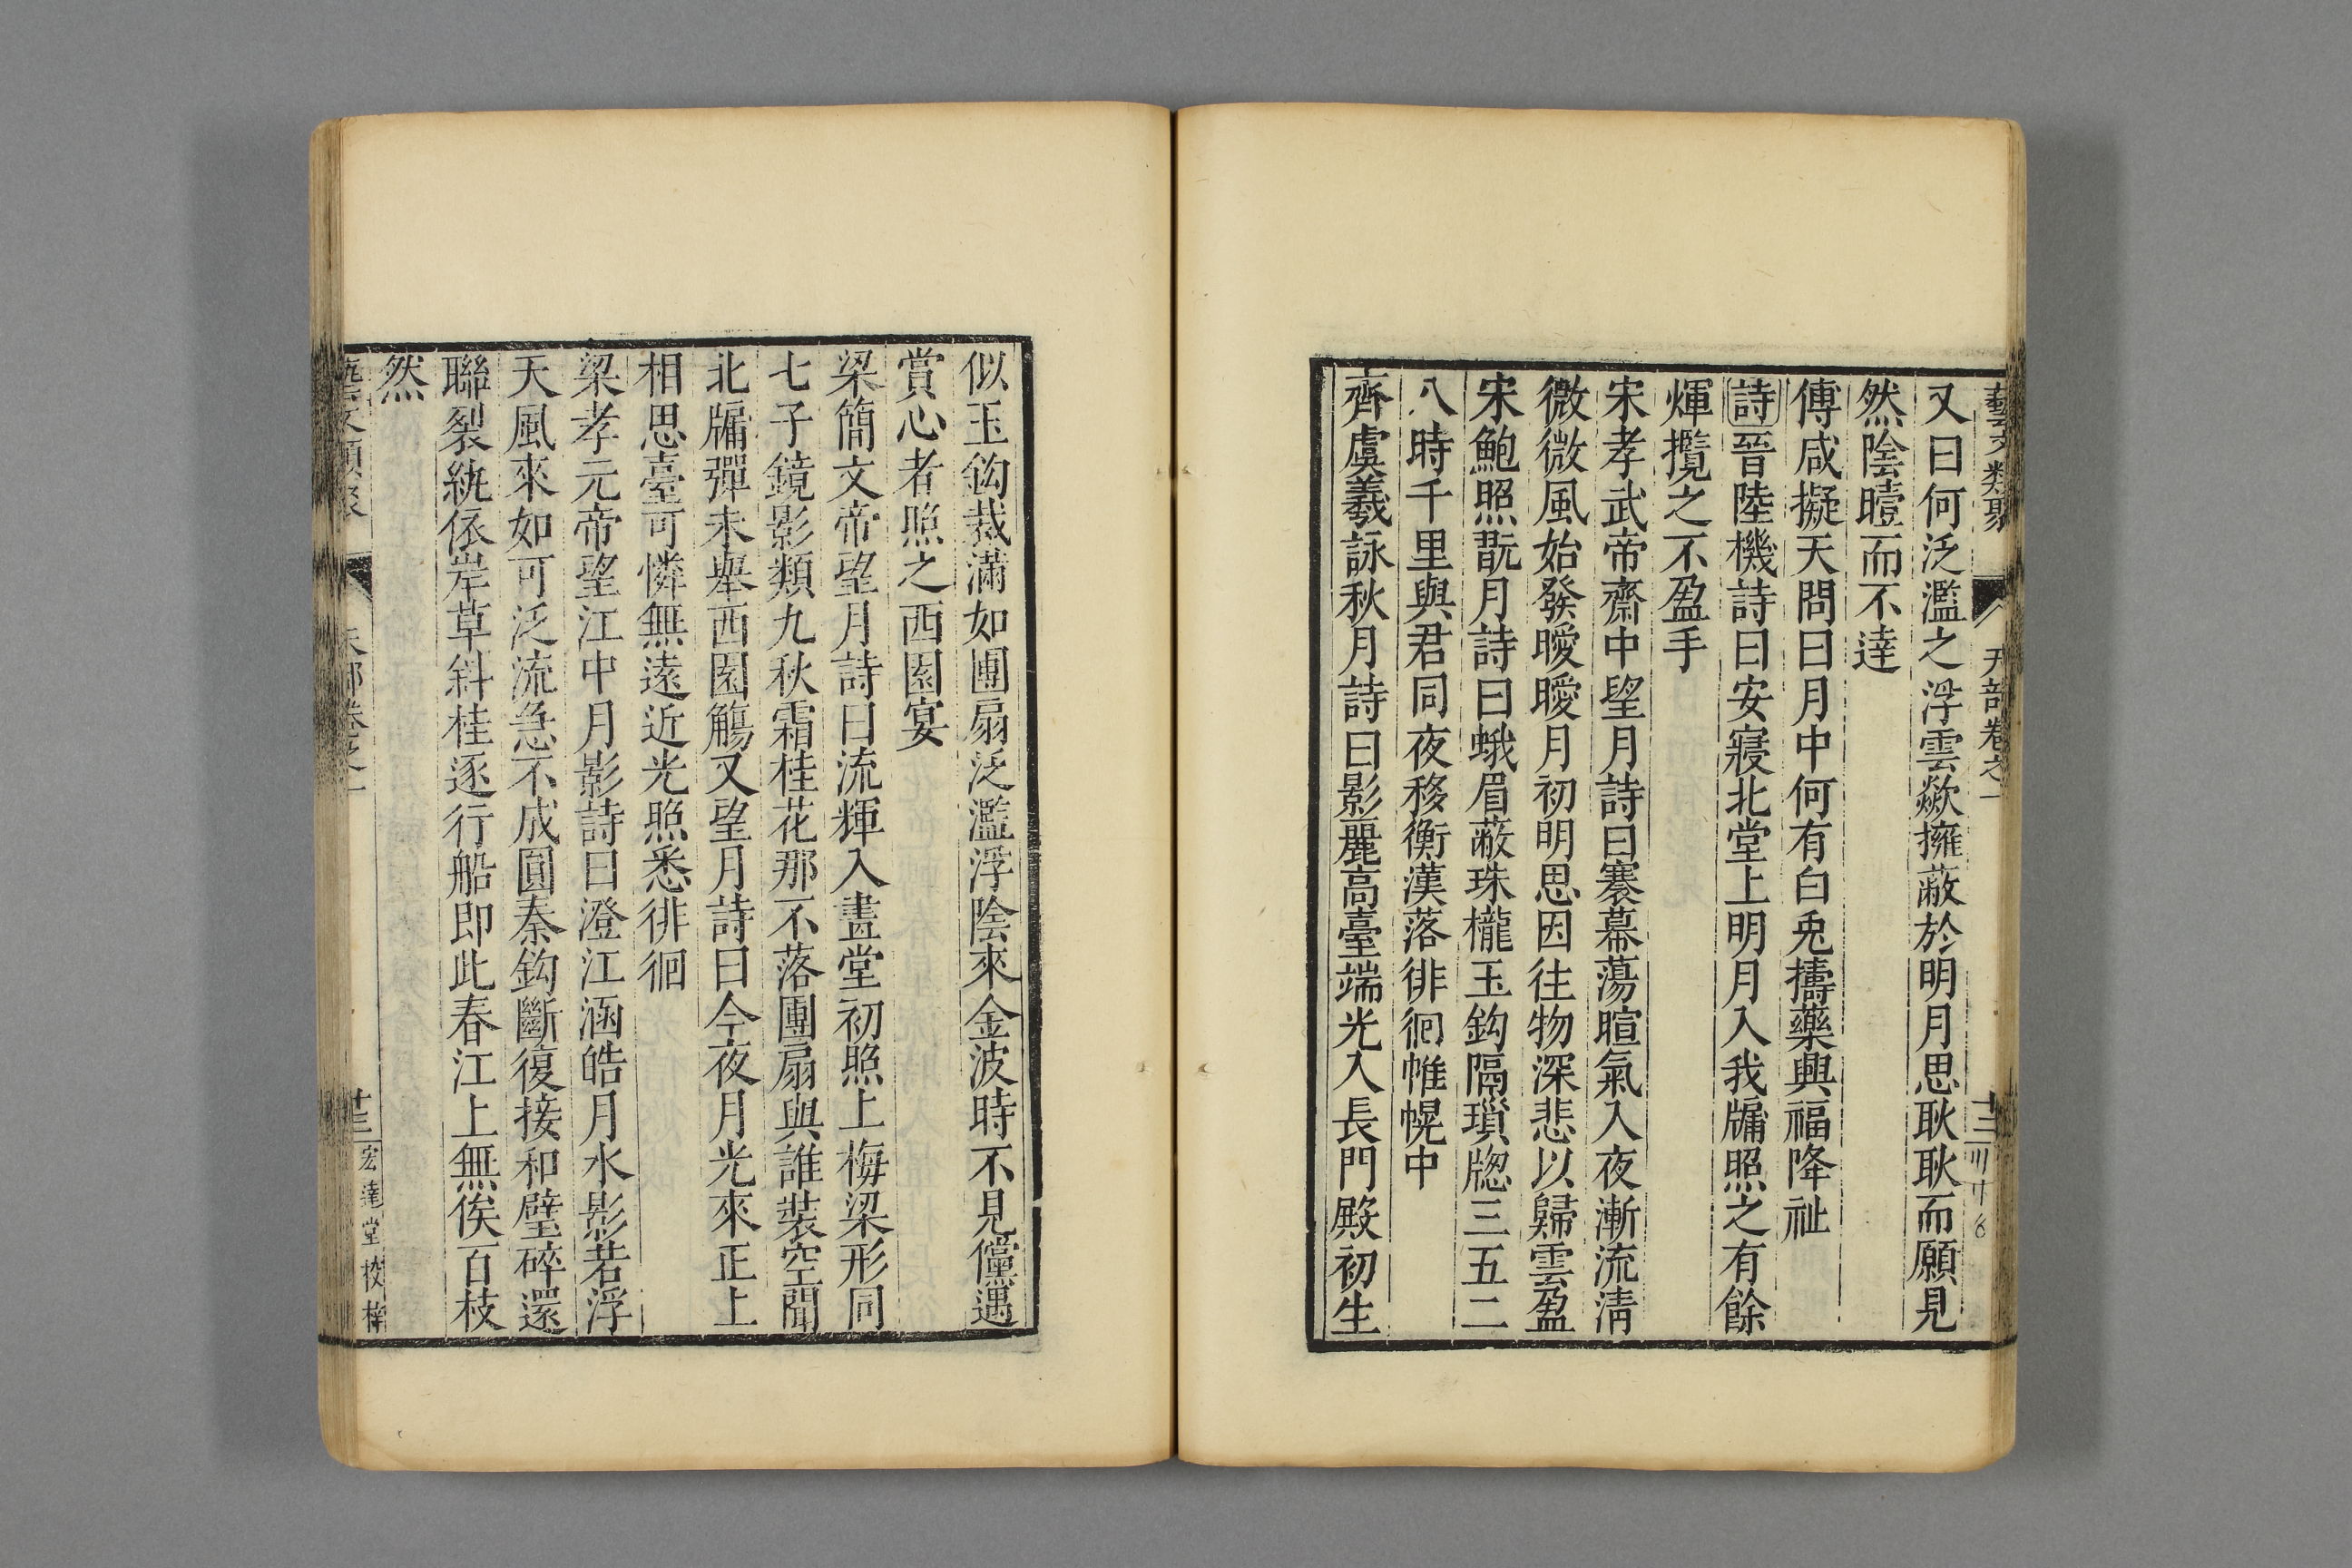 藝文類聚 天部卷之一
又曰何泛濫之浮雲歘擁蔽於明月思耿耿而願見
然陰曀而不達
傅咸擬天問曰月中何有白兎擣藥興福降祉
詩晉陸機詩曰安寢北堂上明月入我牖照之有餘
煇攬之不盈手
宋孝武帝齋中望月詩曰褰幕蕩暄氣入夜漸流清
微微風始發曖曖月初明思因往物深悲以歸雲盈
宋鮑照翫月詩曰蛾眉蔽珠櫳玉鈎隔瑣牕三五二
八時千里與君同夜移衡漢落徘徊帷幌中
齊虞羲詠秋月詩曰影麗高臺端光入長門殿初生
似玉鈎裁滿如團扇泛濫浮陰來金波時不見儻遇
賞心者照之西園宴
梁簡文帝望月詩曰流輝入畫堂初照上梅梁形同
七子鏡影類九秋霜桂花那不落團扇與誰裝空聞
北牖彈未舉西園觴又望月詩曰今夜月光來正上
相思臺可憐無遠近光照悉徘徊
梁孝元帝望江中月影詩曰澄江涵皓月水影若浮
天風來如可泛流急不成圓秦鈎斷復接和璧碎還
聯裂紈依岸草斜桂逐行船即此春江上無俟百枝
然
藝文類聚 天部卷之一 廿三 宏達堂校梓